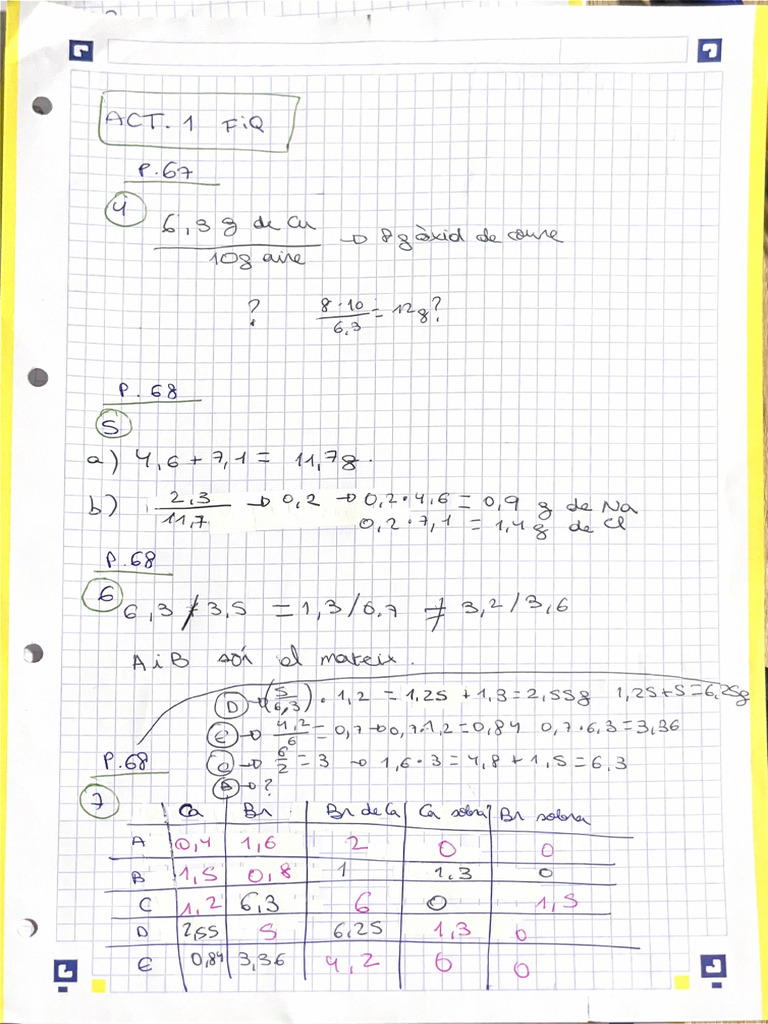 ACT. 1 FiQ
P. 67
4
6,3 g de Cu / 10g aire → 8g òxid de coure
? 8·10 / 6,3 = 12g?
P. 68
5
a) 4,6 + 7,1 = 11,7g.
b) 2,3 / 11,7 → 0,2 → 0,2·4,6 = 0,9 g de Na
0,2·7,1 = 1,4g de Cl
P.68
6
6,3 / 3,5 = 1,3/0,7 ≠ 3,2/3,6
A i B són el mateix.
D → (5/6,3)·1,2 = 1,25 + 1,3 = 2,55g 1,25+5=6,25g
E → 4,2/6 = 0,7 → 0,7·1,2 = 0,84 0,7·6,3 = 3,36
C → 6/2 = 3 → 1,6·3 = 4,8 + 1,5 = 6,3
B → ?
P.68
7
Ca Br Br de Ca Ca sobra Br sobra
A 0,4 1,6 2 0 0
B 1,5 0,8 1 1,3 0
C 1,2 6,3 6 0 1,5
D 2,55 5 6,25 1,3 0
E 0,84 3,36 4,2 0 0